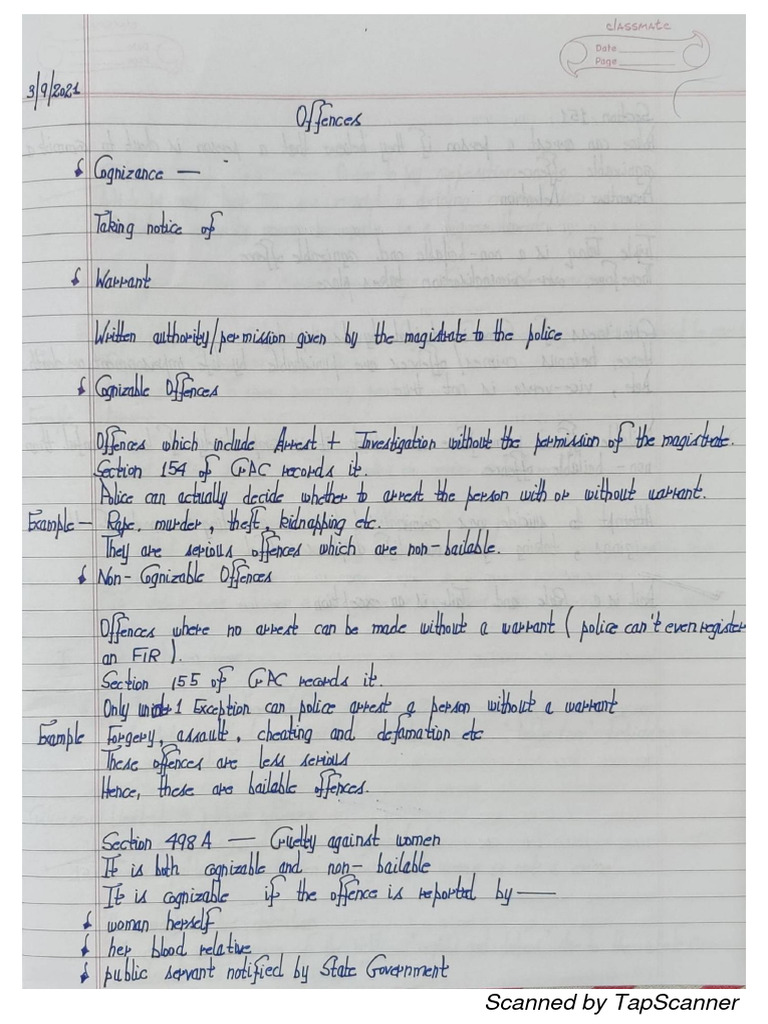 classmate
Date
Page
3/9/2021
Offences
Cognizance —
Taking notice of
Warrant
Written authority/permission given by the magistrate to the police
Cognizable Offences
Offences which include Arrest + Investigation without the permission of the magistrate.
Section 154 of CrPC records it.
Police can actually decide whether to arrest the person with or without warrant.
Example — Rape, murder, theft, kidnapping etc.
They are serious offences which are non-bailable.
Non-Cognizable Offences
Offences where no arrest can be made without a warrant (police can't even register
an FIR).
Section 155 of CrPC records it.
Only 1 Exception can police arrest a person without a warrant
Example Forgery, assault, cheating and defamation etc
These offences are less serious
Hence, these are bailable offences.
Section 498A — Cruelty against women
It is both cognizable and non-bailable
It is cognizable if the offence is reported by —
woman herself
her blood relative
public servant notified by State Government
Scanned by TapScanner